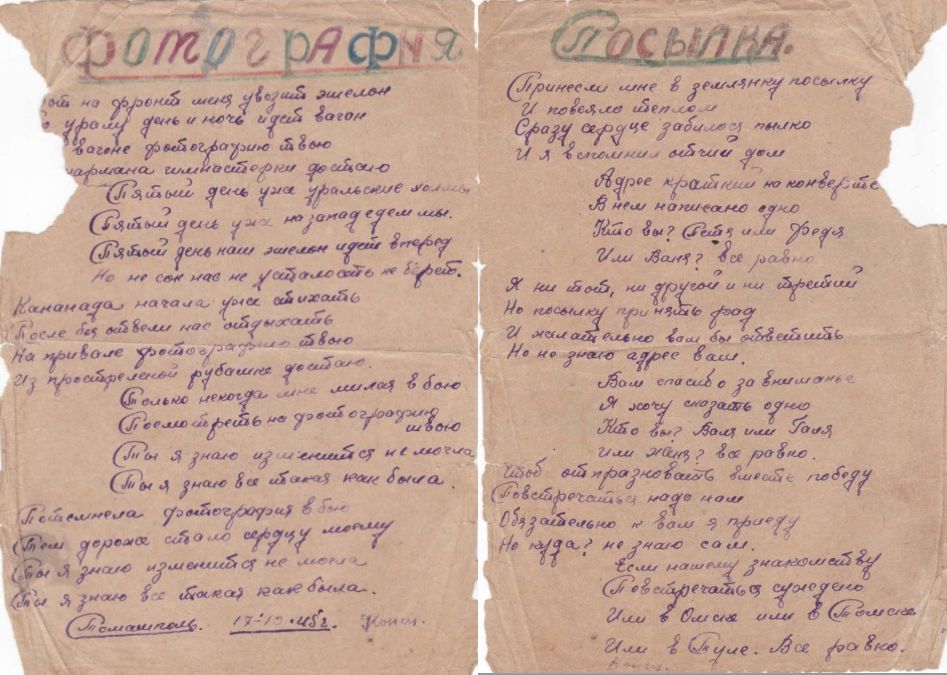 Фотография
на фронт меня увозит эшелон
уралу день и ночь идет вагон
вагоне фотографию твою
гимнастерки достаю
Пятый день уже уральские холмы
Пятый день уже на запад едем мы.
Пятый день наш эшелон идет вперед
Но не сон нас не усталость не берет.
Кананада начала уже стихать
После боя отвели нас отдыхать
На привале фотографию твою
Из простреленой рубашке достаю.
Только некогда мне милая в бою
Посмотреть на фотографию
твою
Ты я знаю изменится не могла
Ты я знаю все такая как была.
Потемнела фотография в бою
Тем дороже стало сердцу моему
Ты я знаю изменится не могла
Ты я знаю все такая как была.
Томашполь. 17-10-45г. Конец.
Посылка.
Принесли мне в землянку посылку
И повеяло теплом
Сразу сердце забилося пылко
И я вспомнил отчий дом
Адрес краткий на конверте
В нем написано одно
Кто вы? Петя или Федя
Или Ваня? все равно
Я ни тот, ни другой и ни третий
Но посылку принять рад
И желательно вам бы ответить
Но не знаю адрес ваш.
Вам спасибо за вниманье
Я хочу сказать одно
Кто вы? Валя или Галя
Или Женя? все равно.
Чтоб отпразновать вместе победу
Повстречаться надо нам
Обязательно к вам я приеду
Но куда? не знаю сам.
Если нашему знакомству
Повстречаться суждено
Или в Омске или в Томске
Или в Туле. Все равно.
Конец.